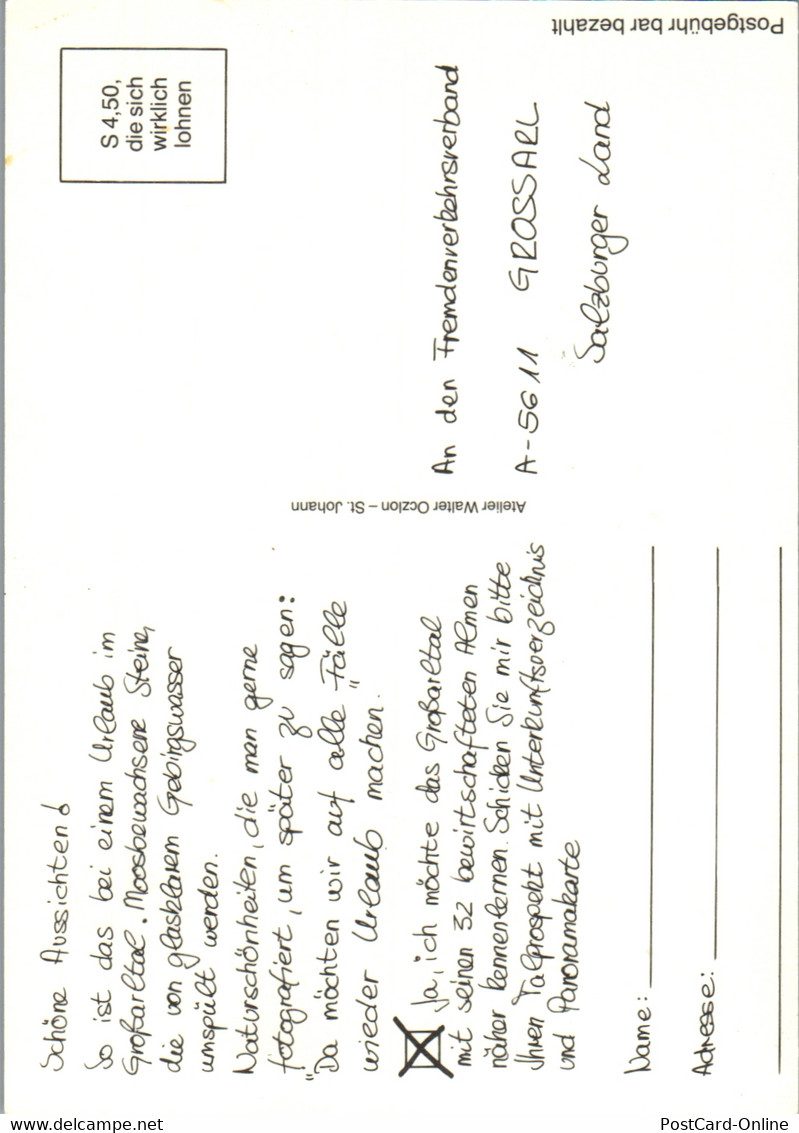 Schöne Aussichten!
So ist das bei einem Urlaub im
Großarltal. Moosbewachsene Steine,
die von glasklarem Gebirgswasser
umspült werden.
Naturschönheiten, die man gerne
fotografiert, um später zu sagen:
"Da möchten wir auf alle Fälle
wieder Urlaub machen."
Ja, ich möchte das Großarltal
mit seinen 32 bewirtschafteten Almen
näher kennenlernen. Schicken Sie mir bitte
Ihren Talprospekt mit Unterkunftsverzeichnis
und Panoramakarte
Name:
Adresse:
Atelier Walter Oczlon – St. Johann
S 4,50,
die sich
wirklich
lohnen
An den Fremdenverkehrsverband
A-5611 GROSSARL
Salzburger Land
Postgebühr bar bezahlt
delcampe.net
PostCard-Online